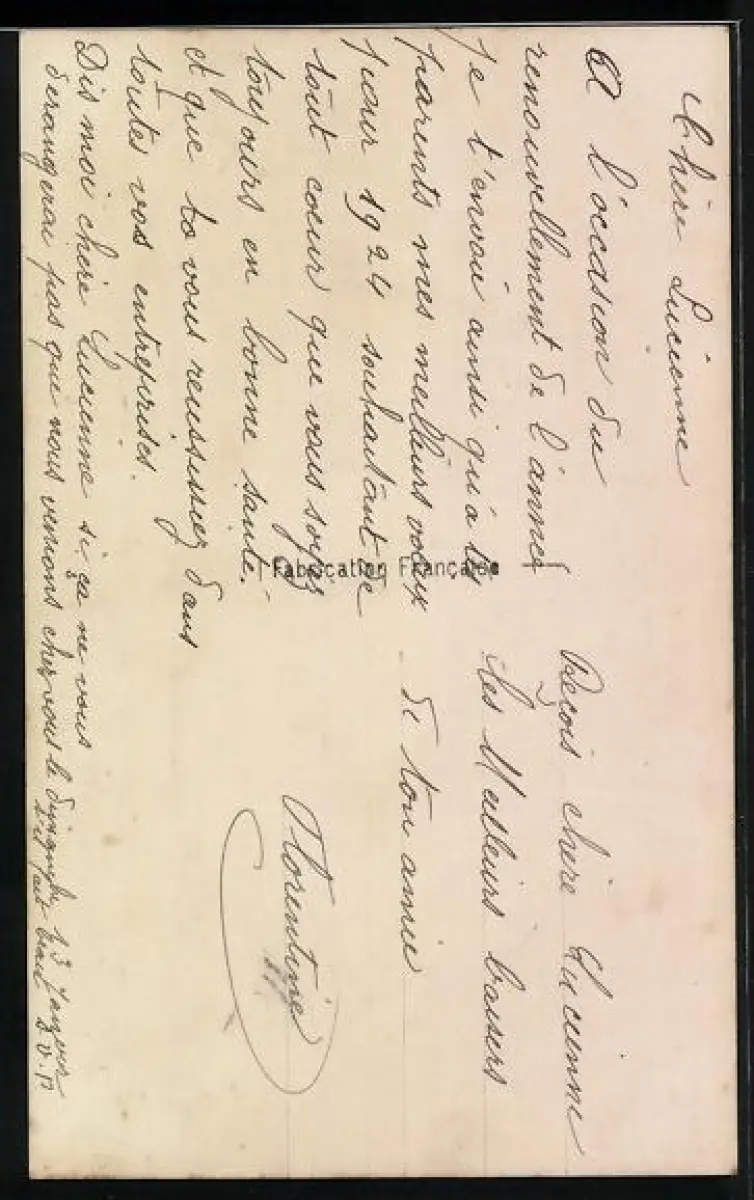 Chère Lucienne
A l'occasion du
renouvellement de l'année
je t'envoie ainsi qu'à tes
parents mes meilleurs voeux
pour 1924 souhaitant de
tout coeur que vous soyez
toujours en bonne santé.
et que ta vous reussissiez dans
toutes vos entreprises.
Dis moi chère Lucienne si ça ne vous
derangerai pas que nous venions chez vous le dimanche 13 Janvier
s'il fait beau S.V.P
Reçois chère Lucienne
les Meilleurs baisers
de ton amie
Florentine
Fabrication Française